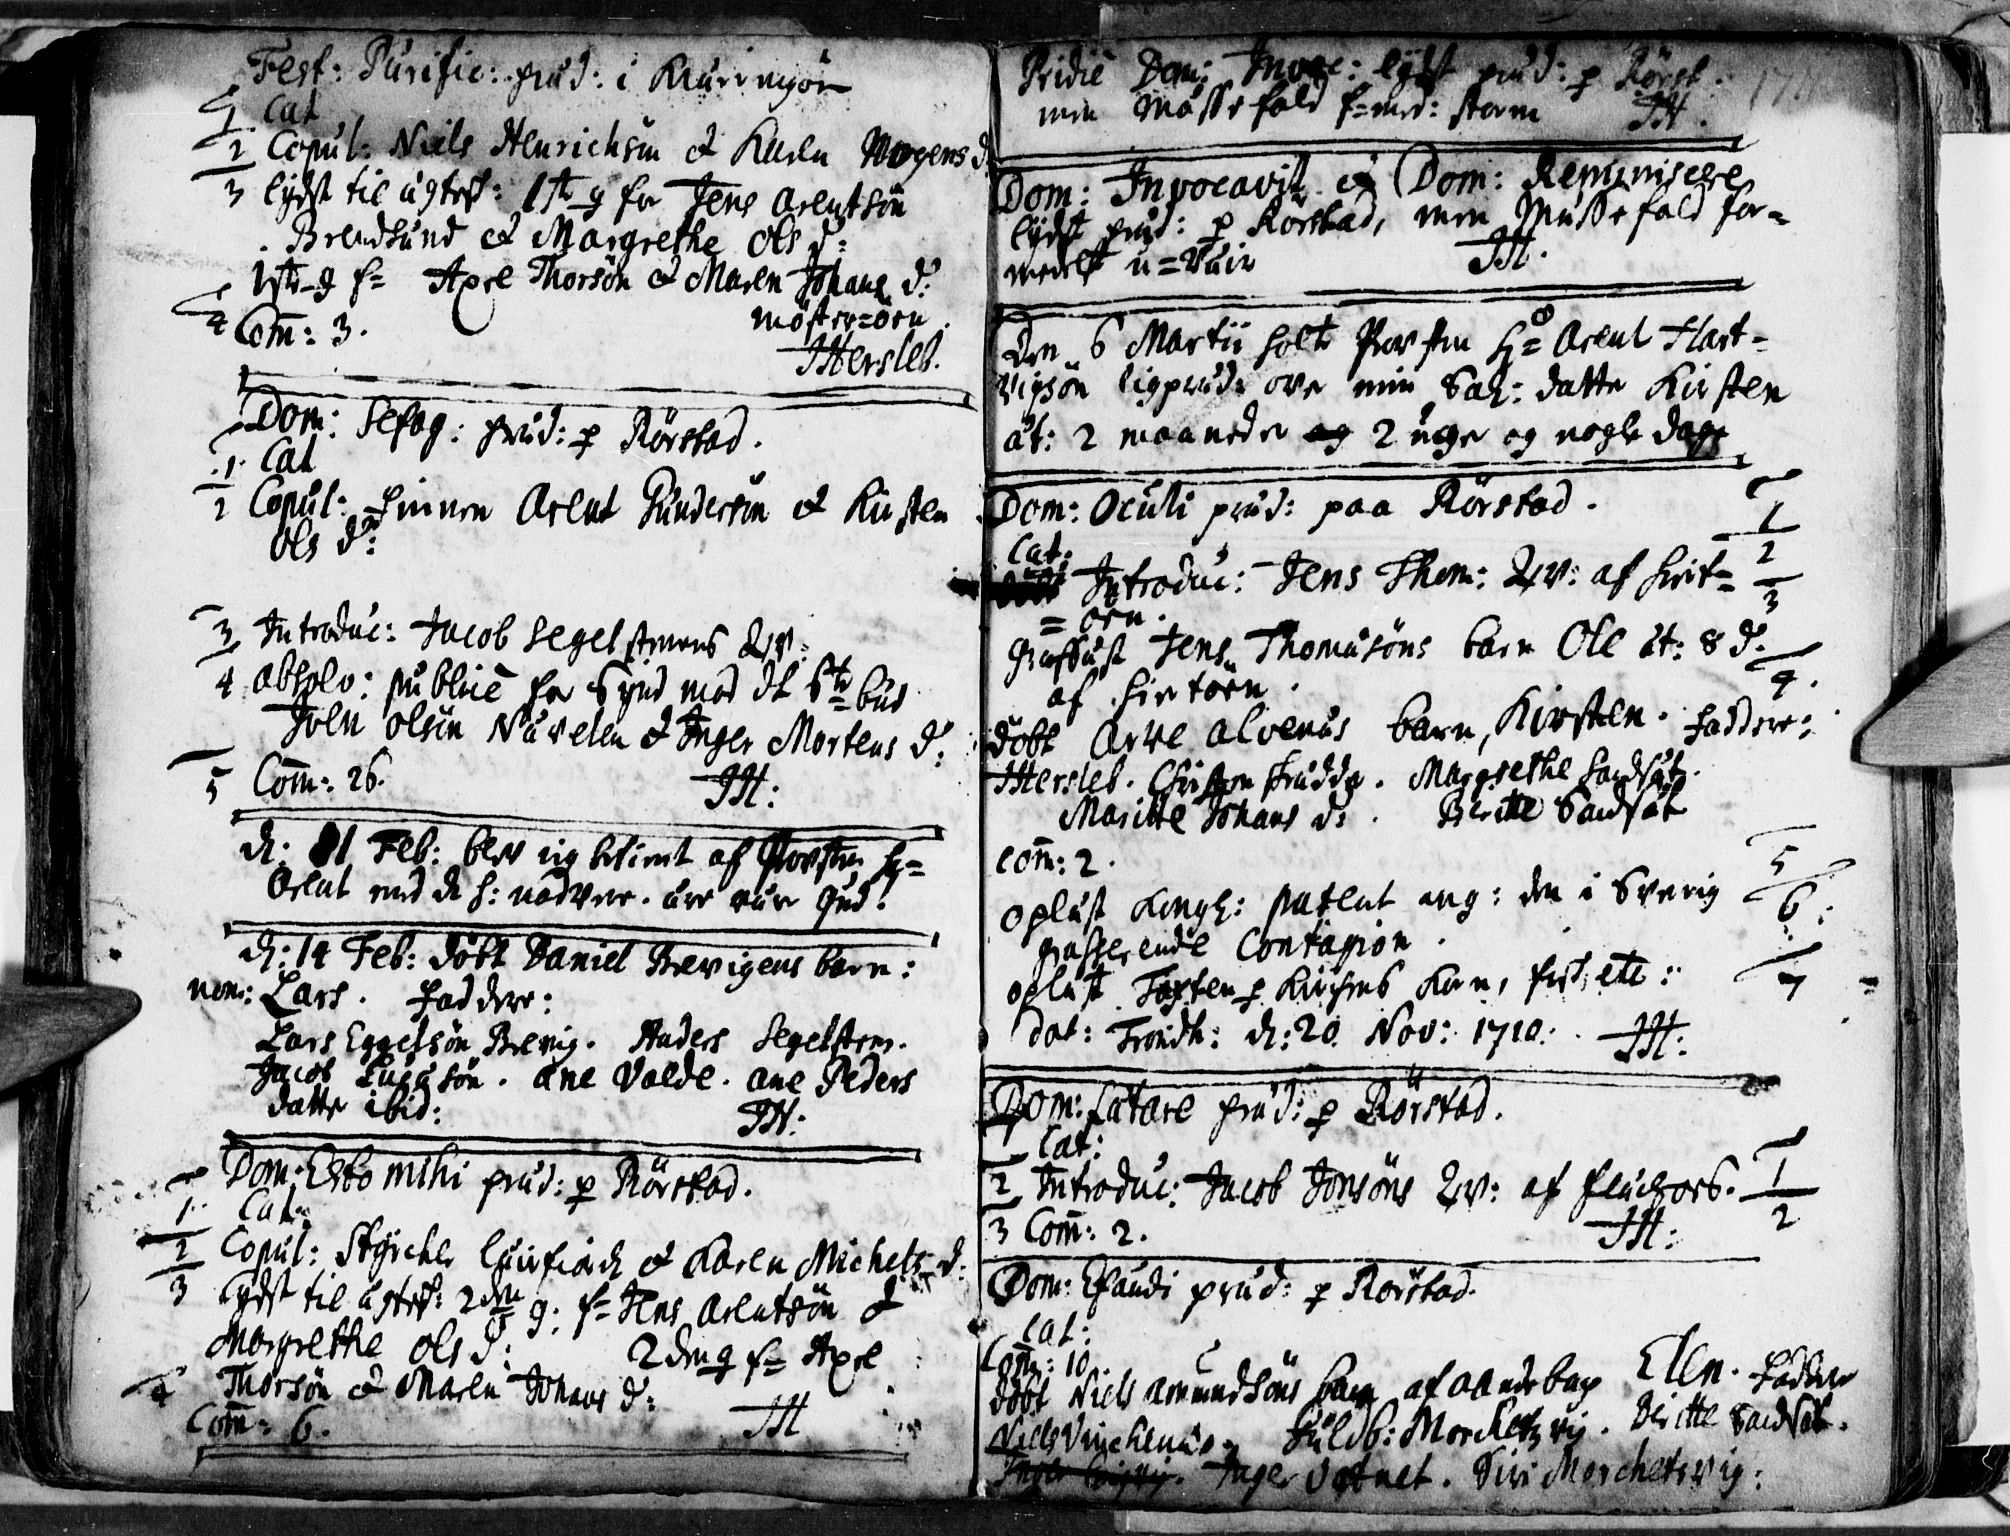 Fest: Purific: præd: i Kiæringøn
1 Cat
2 Copul: Niels Henrichsøn & Karen Mogens d.
3 lyst til ægtesk: 1ste g for Jens Arentsøn
Brendsund & Margrethe Ols d:
1ste g f= Axel Thorsøn & Maren Johans d:
4 Com̄: 3. mösterøen
JHersleb.
Dom: Sexag: præd: p Rörstad.
1. Cat
2 Copul: Finnen Arent Gundersen & Kirsten
Ols d:
3 Introduc: Jacob Segelstmens Qv:
4 absolv: publicè for Synd mod det 6te bud
Joen Olsen Navelen & Inger Mortens d:
5 Com̄: 26. JH:
d: 11 Feb: blev ieg betient af Provsten H=
Arent med d h: nadvere. ære være gud!
d: 14 Feb: döbt Daniel Brevigens barn:
nom: Lars. Faddere:
Lars Eggelsøn Brevig. Anders Segelstem.
Jacob Lucasøn. Ane Valde. Ane Peders
datter ibid: JH:
Dom: Esto mihi præd: p Rörstad.
1. Cat:
2 Copul: Styrcker Leirfiord & Karen Michels d:
3 Lyst til ægtesk: 2den g: f= Jens Arentsøn &
Margrethe Ols d: 2den g f= Axel
Thorsøn & Maren Johans d:
4 Com̄: 6. JH
Pridiè Dom: Invoc: lyst præd: p Rörst.
men Messefald f=med: storm JH.
Dom: Invocavit & Dom: Reminiscere
lyst præd: p Rörstad, men Messefald for=
medelst u=veir JH.
Den 6 Martii holte Provsten Hr= Arent Hart=
vigsøn ligpræd: over min Sal: datter Kirsten
æt: 2 maaneder og 2 uger og nogle dage
Dom: Oculi præd: paa Rörstad. 1
Cat: 2
Introduc: Jens Thom: Qv: af hiert= 3
=öen.
Jens Thomæsöns barn Ole æt: 8 d: 4.
af hiertöen.
döbt Arve Alvenes barn, Kirsten. Faddere:
JHersleb. Margrethe Sandsæt.
Maritte Johans d: . Beritte Sandsæt
Com̄: 2. 5
oplæst Kongl: patent ang: den i Sverig 6:
grasserende Contagion.
oplæst Taxten p Kirchens Korn, fisk, etc: 7
dat: Trondh: d: 20. Nov: 1710. JH:
Dom: Lætare præd: p Rörstad.
Cat: 1
2 Introduc: Jacob Jonsöns Qv: af 2
3 Com̄: 2. JH:
Dom: Exaudi præd: p Rörstad.
Cat:
Com̄: 10.
döbt Niels Amundsöns barn Ellen. Faddere
Morchesvig. Beritte Sandsæt.
Inger Vatnet. Siri Morchesvig: